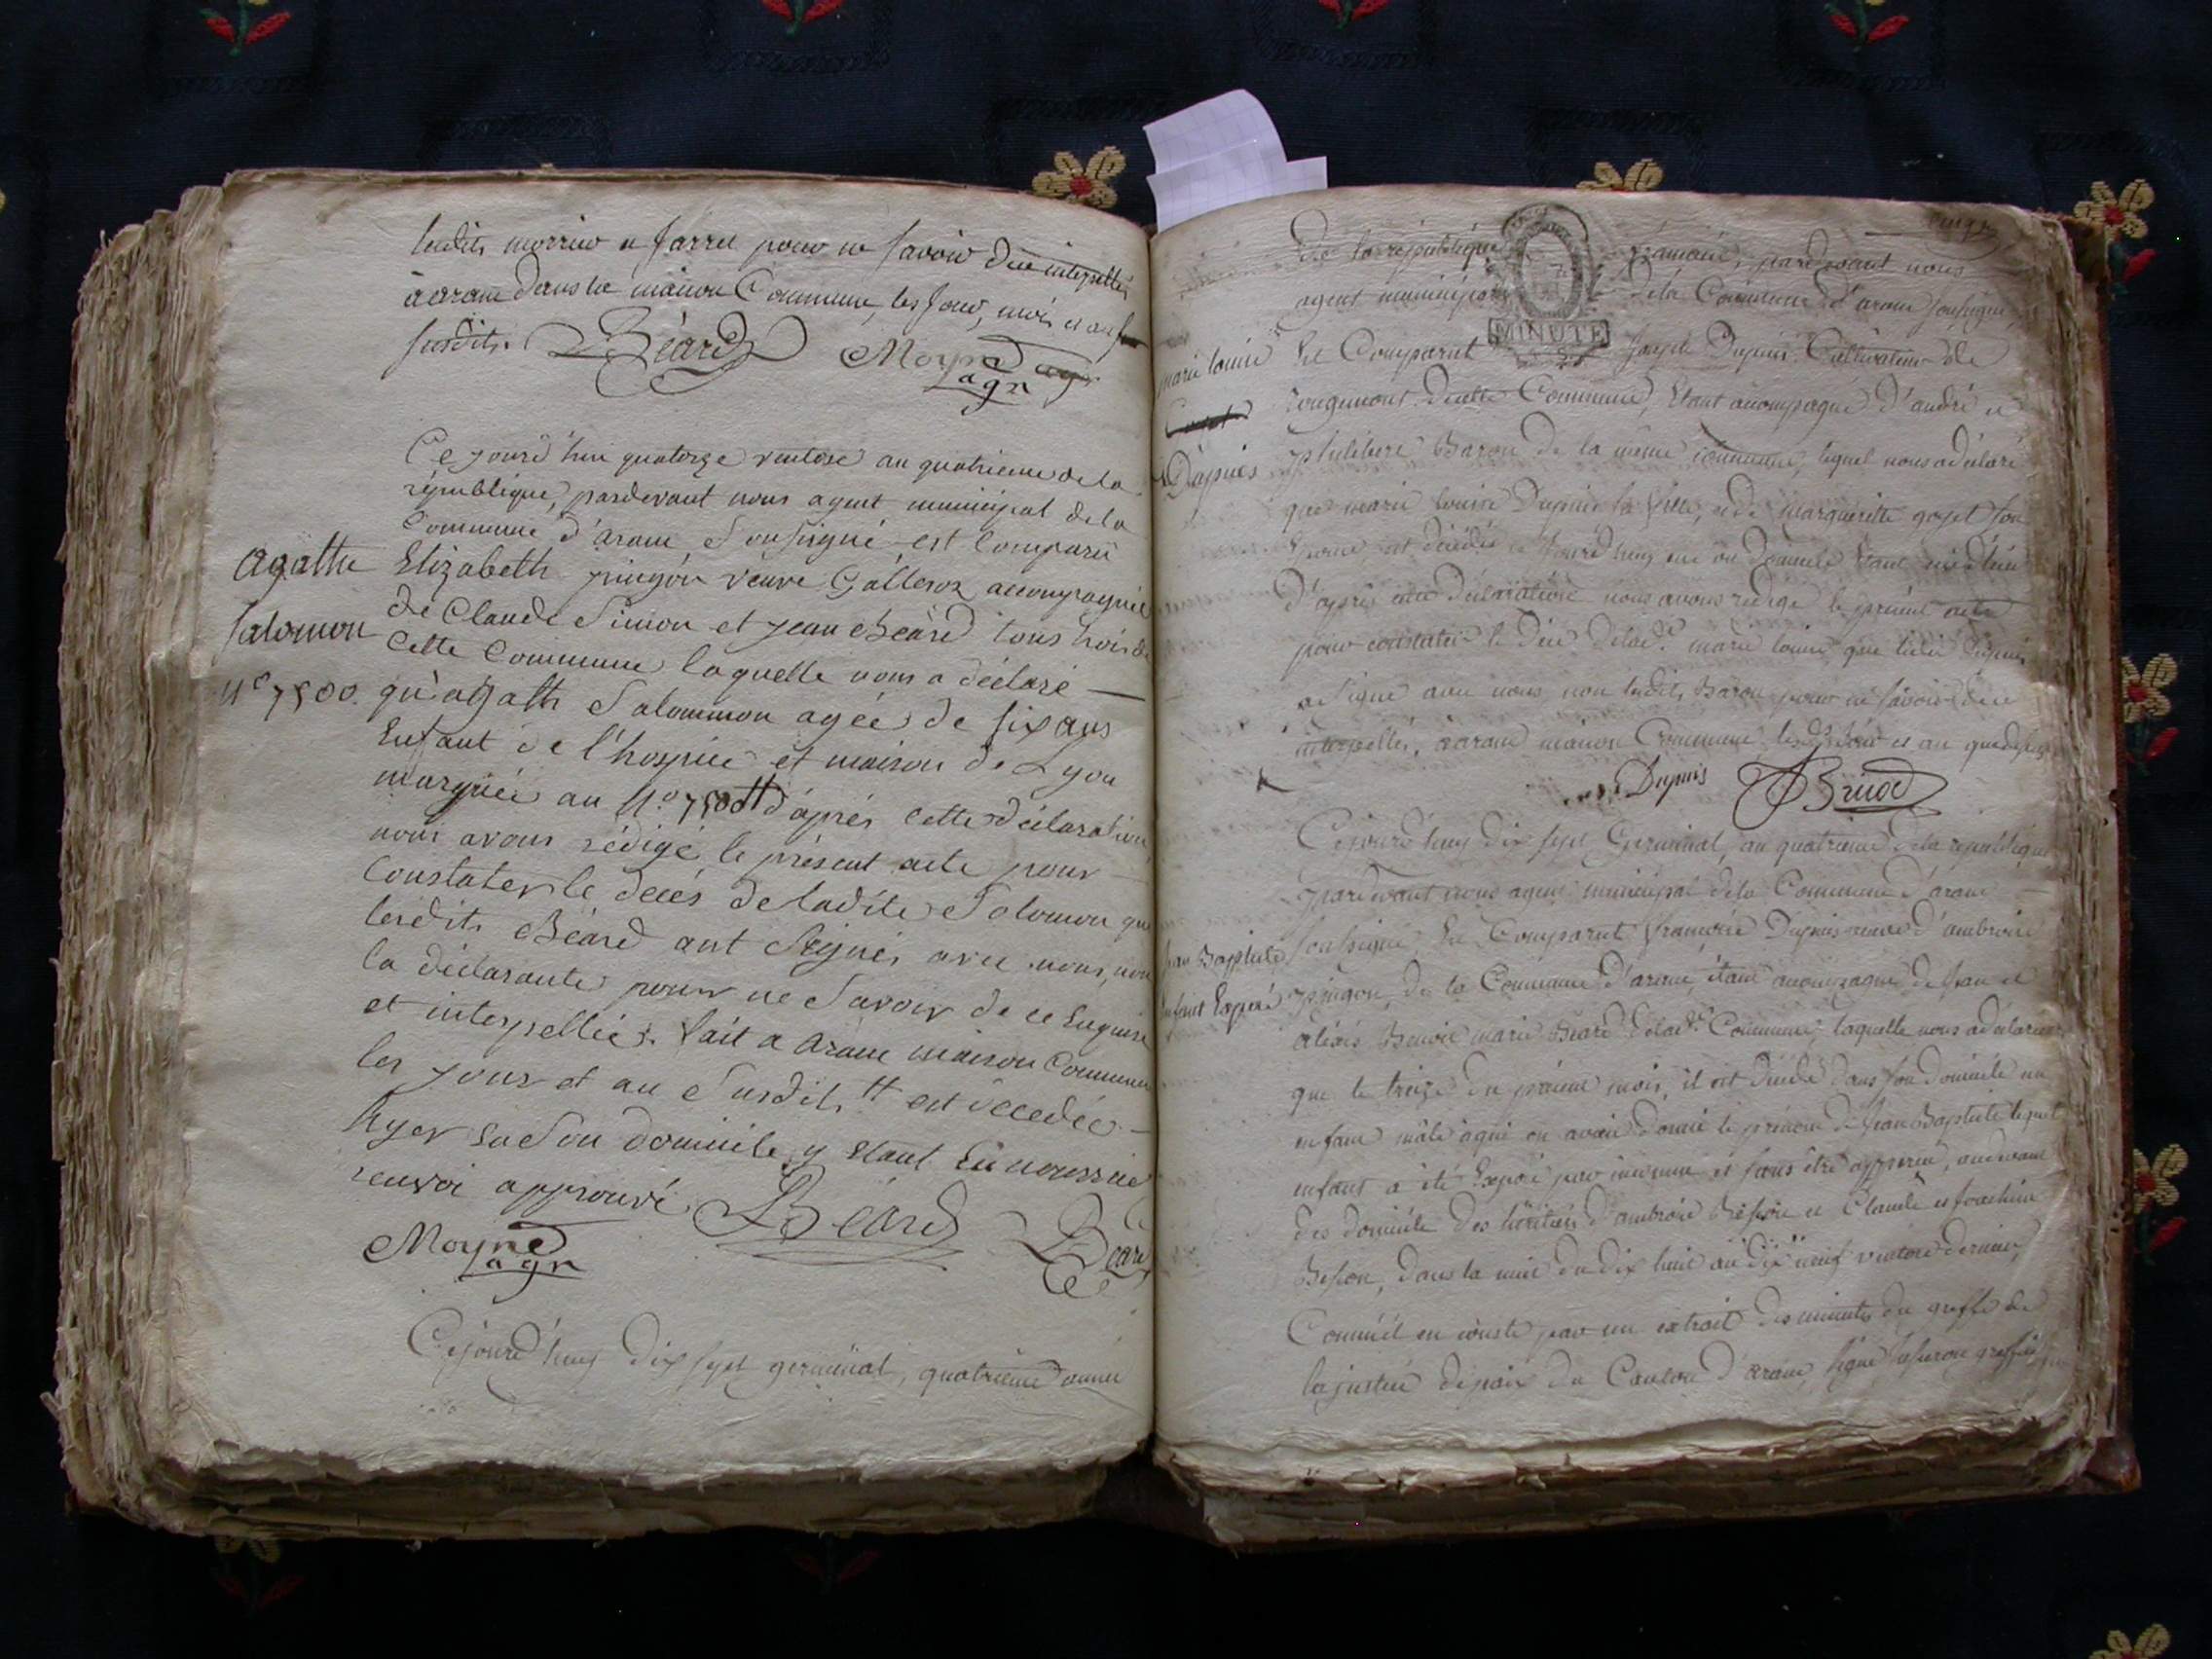 lesdits morrier et Jarret pour ne savoir de ce interpellés
a arane dans la maison Commune, les Jour, mois et an
susdits. Béard Moyne agn
Ce jourd'hui quatorze ventose an quatrieme de la
république, pardevant nous agent municipal de la
Commune d'arane, Soussigné, est Comparü
agathe
Elizabeth pingon veuve Galleron accompagnée
de Claude Simon et jean Béard tous trois de
Salomon
Cette Commune laquelle nous a déclaré
n.o 7500.
qu'agath Salommon agée de six ans
Enfant de l'hospice et maison de Lyon
marquée au n.o 7500 # d'aprés cette déclaration,
nous avons rédigé le présent acte pour
Constater le decés de ladite Solomon que
lesdits Béard ont Seignés avec nous, non
la déclarante pour ne Savoir de ce Enquise
et interpellée. fait a Arane maison Commune
les jour et an Susdits # est décedée
hyer en Son domicile y Etant En nourrice
renvoi approuvé Béard Béard
Moyne agn
Cejourd'huy dix sept germinal, quatrieme année
de la république française, pardevant nous
agent municipal de la Commune d'arane soussigné,
marie louise
Est Comparut Joseph Dupuis Cultivateur de
rougemont de cette Commune, Etant accompagné d'andré et
Dupuis
philibert Baron de la même commune, lequel nous a déclaré
que marie louise Dupuis sa fille, et de marguerite gojet son
Epouse est décédée ce jourd'huy en son domicile
D'après cette déclaration nous avons rédigé le présent acte
pour constater le décè de lad.e marie louise que ledit Dupuis
a signé avec nous non lesdits Baron pour ne savoir de ce
interpellés, a arane maison Commune lesd. jour et an que dessus
Dupuis Briod
Cejourd'huy dix sept Germinal, an quatrieme de la république
pardevant nous agent municipal de la Commune d'arane
Jean Baptiste
soussigné, Est Comparut françoise Dupuis veuve d'ambroise
enfant Exposé
pingon, de la Commune d'arane, étant accompagné de Jean et
alexis Benoit marie Béard de lad.e Commune, laquelle nous a déclaré
que le treize du présent mois, il est décédé dans son domicile un
enfant mâle aqui on avait donné le prénom de Jean Baptiste lequel
enfant a été Exposé par inconnu et sans être apperçu, au devant
des domicile des héritiers d'ambroise Besson et Claude et joachim
Besson, dans la nuit du dix huit au dix neuf ventose dernier,
Comme il en conste par un extrait des minutes du greffe de
la justice de paix du Canton d'arane, signé greffier
MINUTE